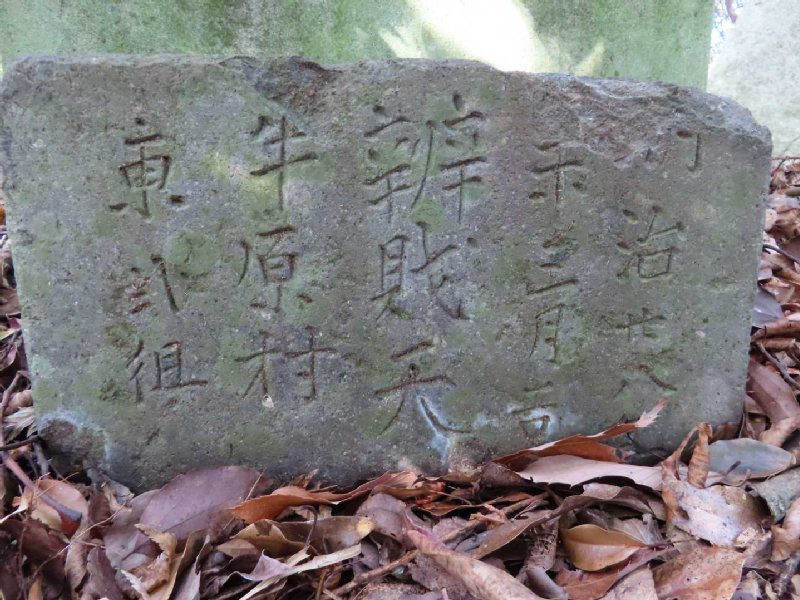 明治廿八
年三月吉
辨財天
牛原村
東弐組